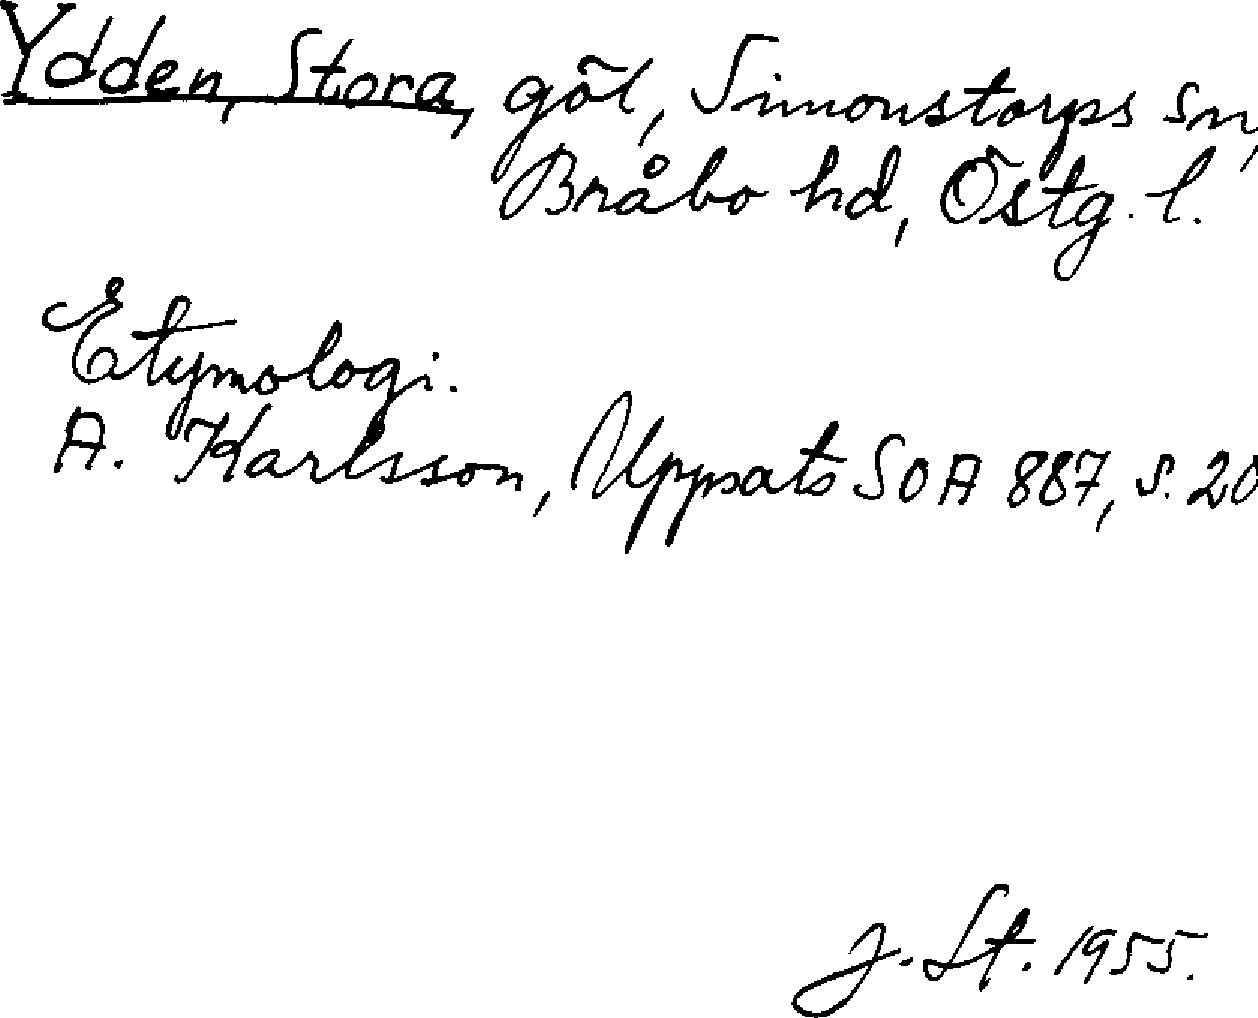 Ydden, Stora, göl, Simonstorps sn,
Bråbo hd, Östg. l.
Etymologi.
A. Karlsson, Uppsats SOA 887, s. 20
J. St. 1955.